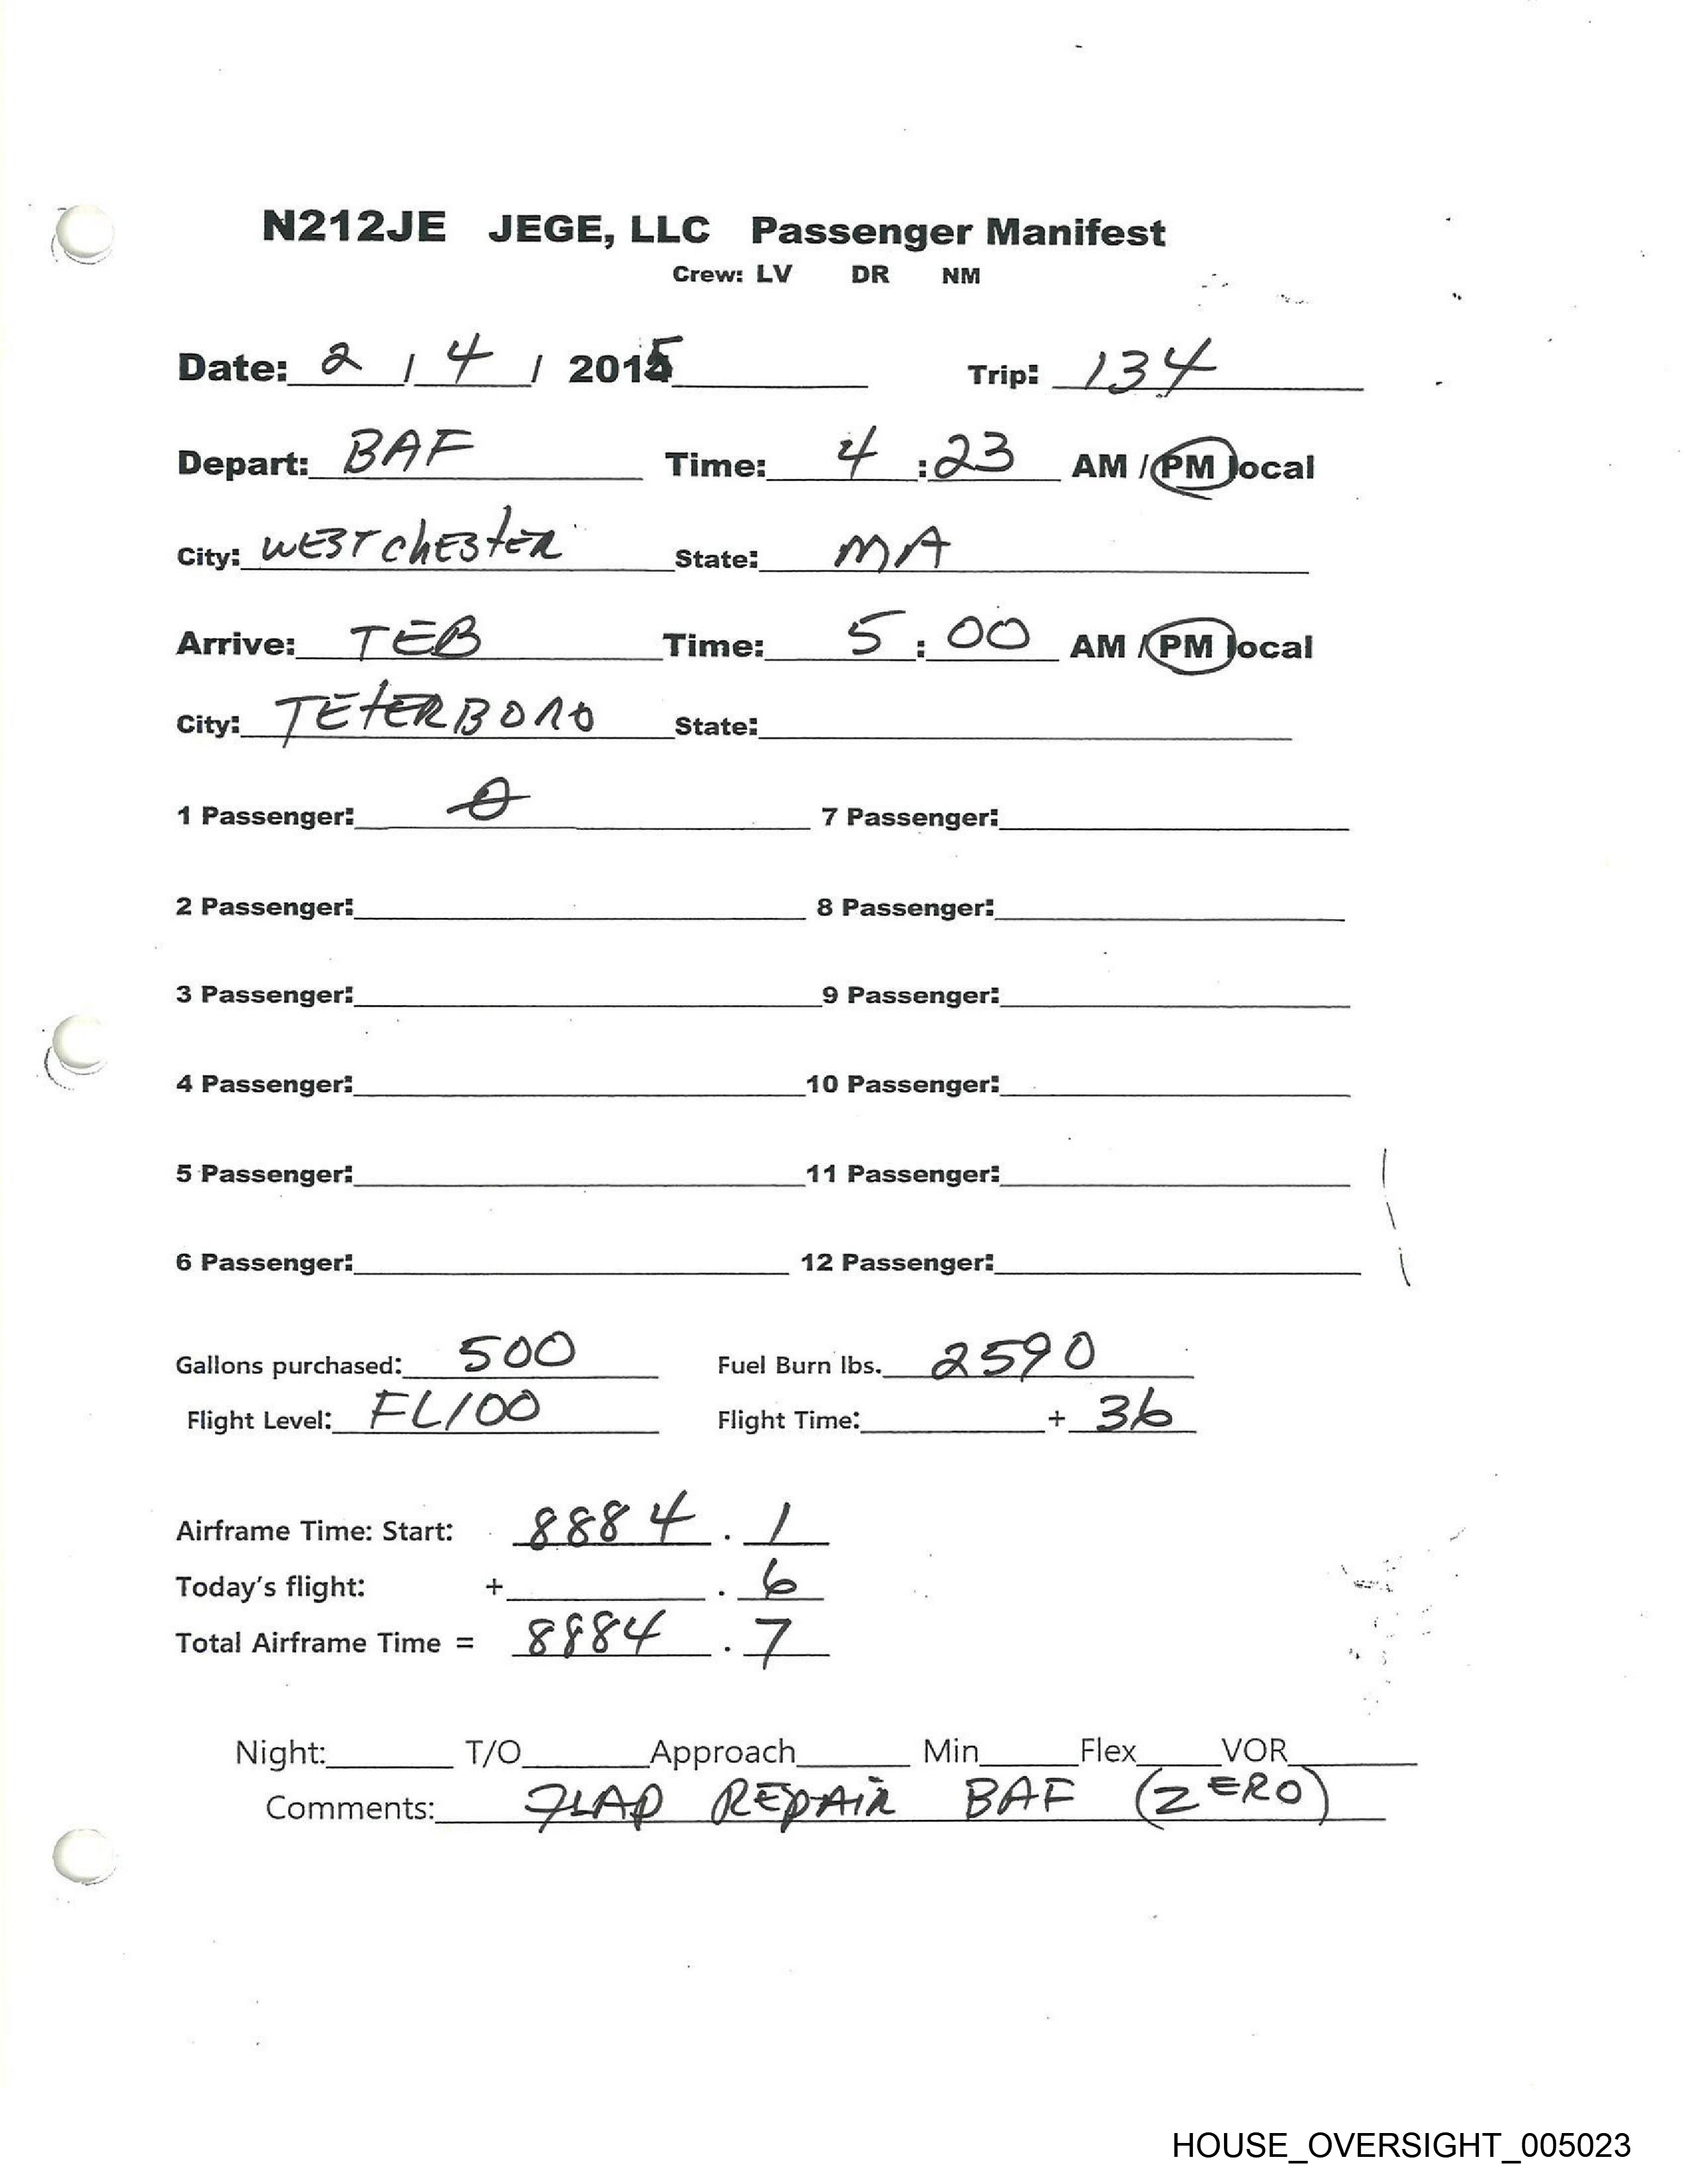 N212JE JEGE, LLC Passenger Manifest
Crew: LV DR NM
Date: 2 / 4 / 2015 Trip: 134
Depart: BAF Time: 4 : 23 AM / PM local
City: WESTCHESTER State: MA
Arrive: TEB Time: 5 : 00 AM / PM local
City: TETERBORO State:
1 Passenger: 0 7 Passenger:
2 Passenger: 8 Passenger:
3 Passenger: 9 Passenger:
4 Passenger: 10 Passenger:
5 Passenger: 11 Passenger:
6 Passenger: 12 Passenger:
Gallons purchased: 500 Fuel Burn lbs. 2590
Flight Level: FL100 Flight Time: + 36
Airframe Time: Start: 8884 . 1
Today's flight: + . 6
Total Airframe Time = 8884 . 7
Night: T/O Approach Min Flex VOR
Comments: FLAP REPAIR BAF (ZERO)
HOUSE_OVERSIGHT_005023